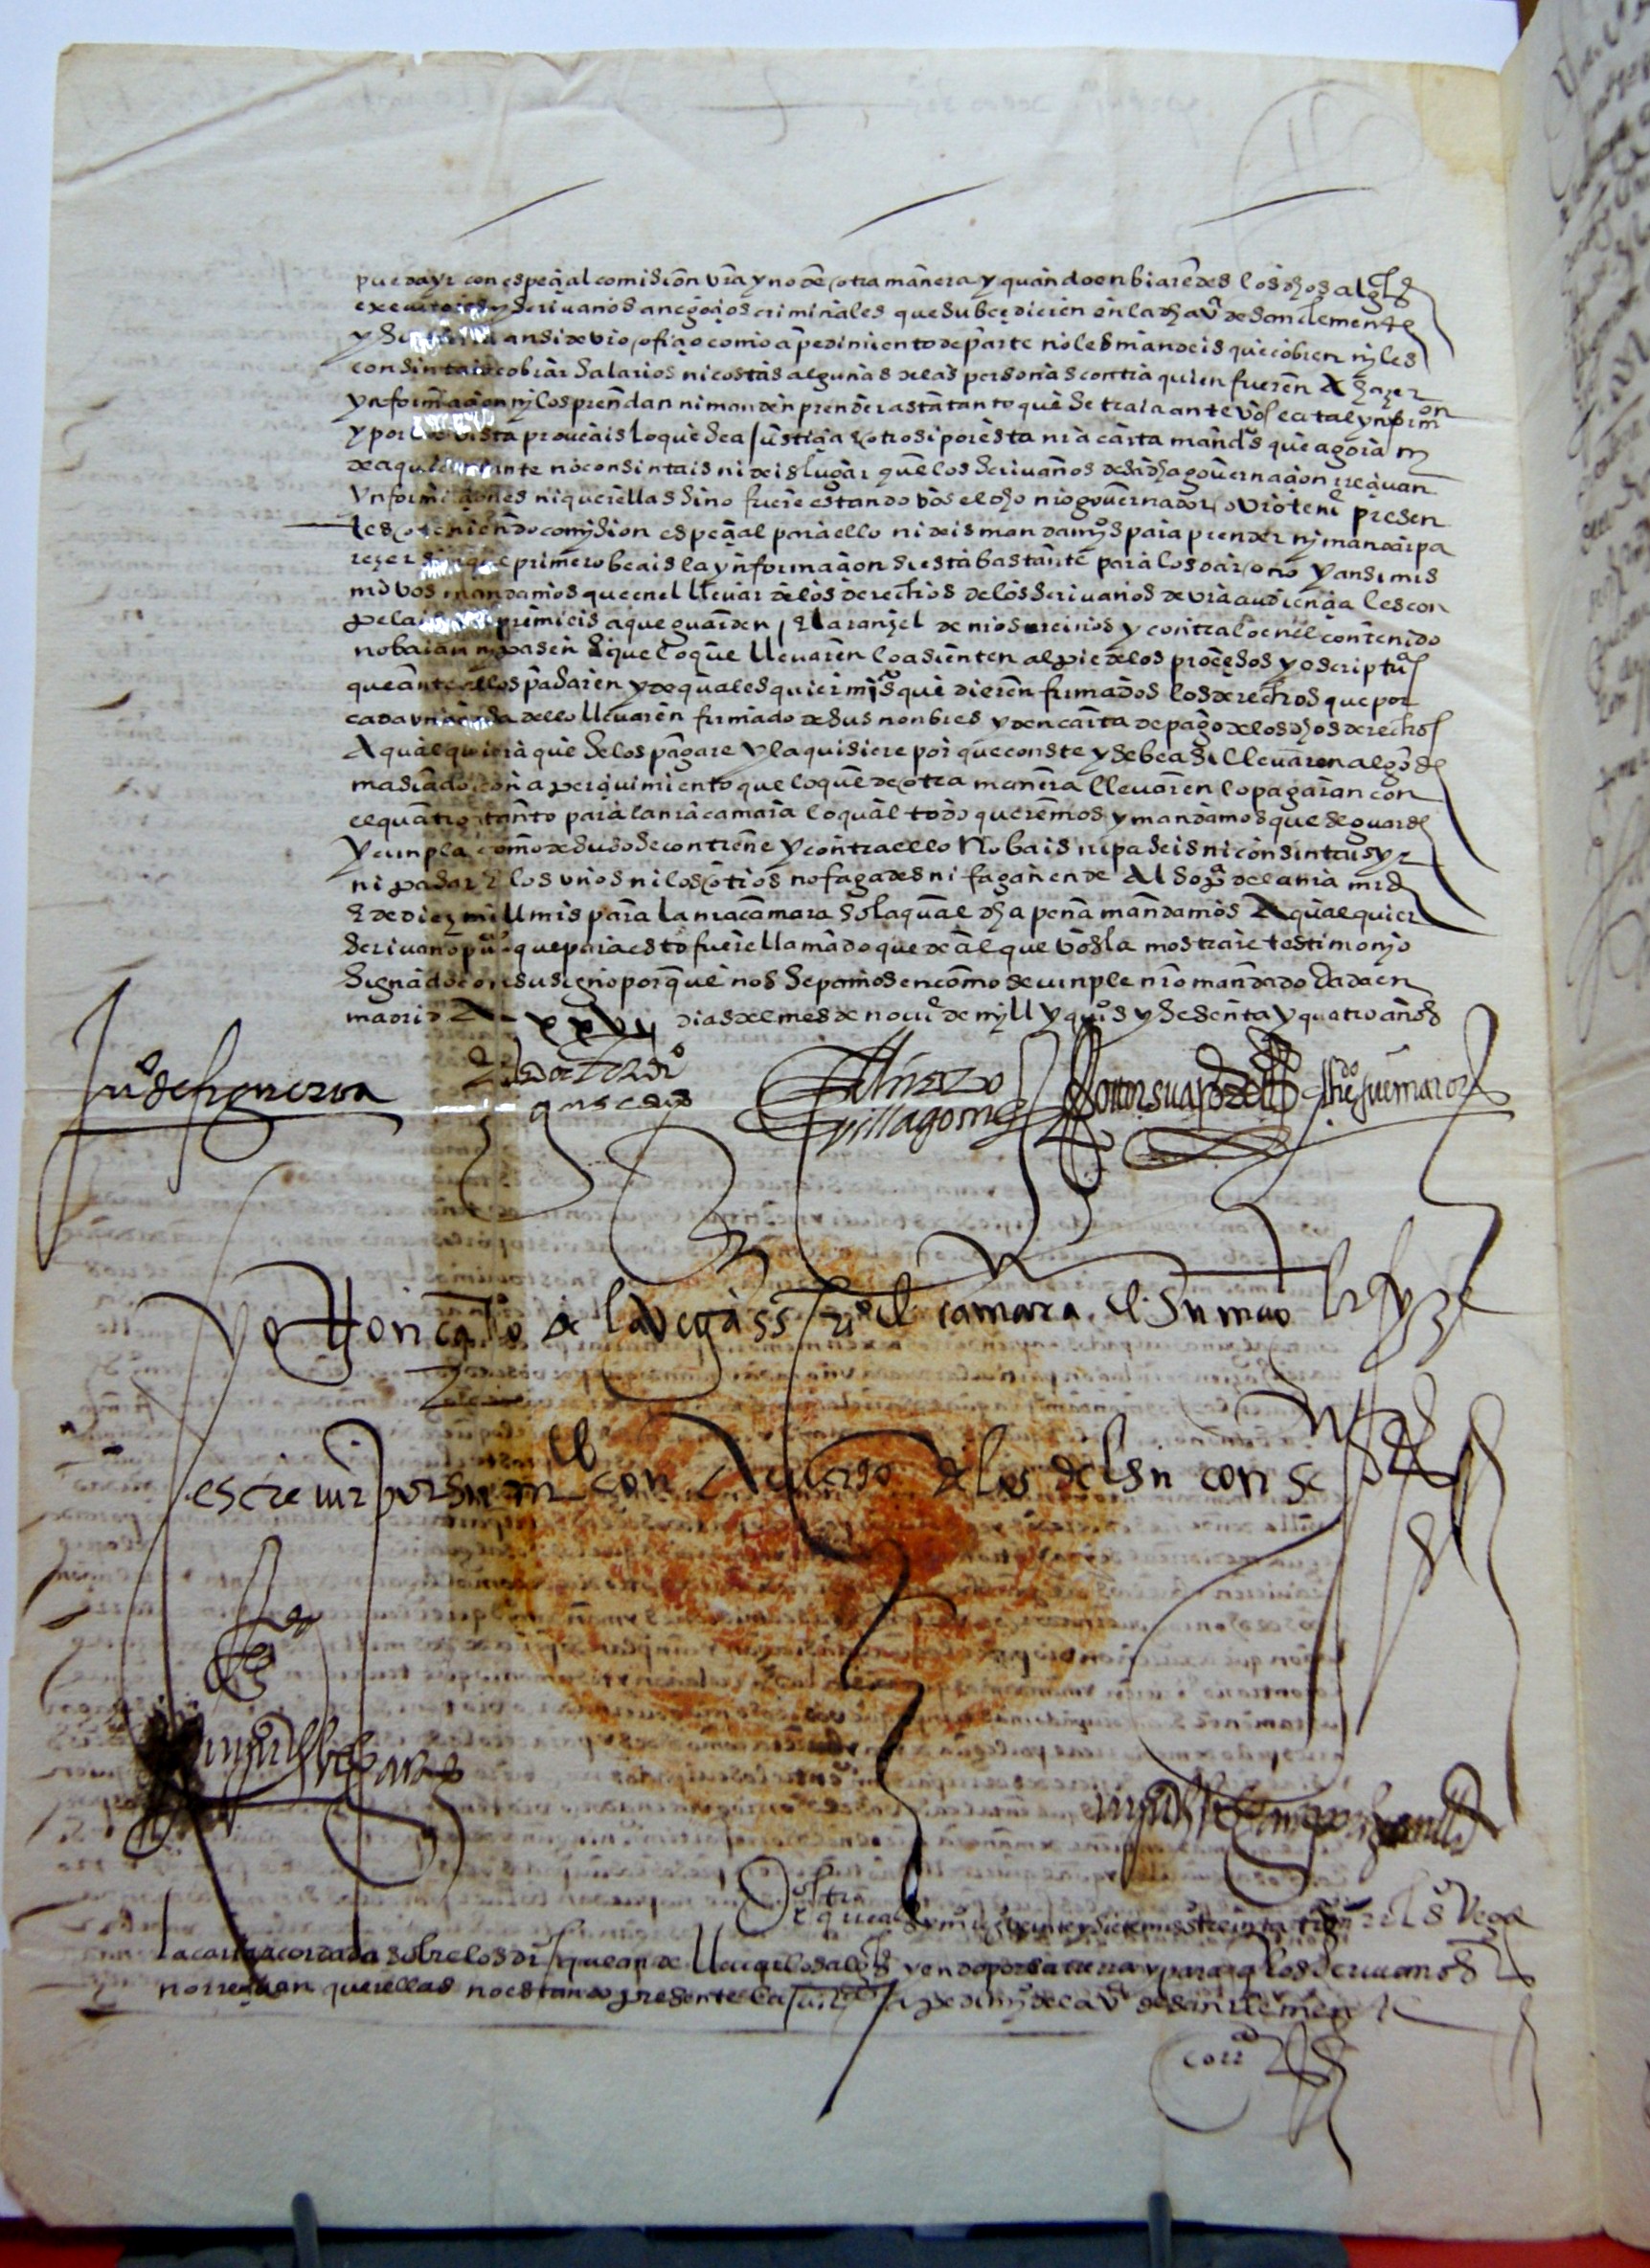 puedayr con espeçial comision vra y no de otra manera y quando enbiaredes los dhos algles
executores y scrivanos a negoçios criminales que subçedieren en la dha va de san clemente
y su ansi de vro ofiçio como a pedimiento de parte no les mandeis que cobren ny les
consintais cobrar salarios ni costas algunas de las personas contra quien fueren A hazer
ynformaçion ny los prendan ni manden prender asta tanto que se traia ante vos la tal ynformon
y por vos vista proveais lo que sea justiçia otrosi por esta nra carta mandos que agora ny
de aqui adelante no consintais ni deis lugar que los scrivanos desa dha governaçion rreçivan
ynformaçiones ni querellas sino fuere estando vos el dho nro governador o vro teni presen
tes o teniendo comysion espeçial para ello ni deis mandamyos para prender ny mandar pa
reçer sin que primero beais la ynformaçion si esta bastante para los dar o no y ansimis
mo vos mandamos que en el llevar de los derechos de los scrivanos de vra audiençia les con
pelais y apremieis a que guarden el aranzel de nros rreinos y contra lo en el contenido
no baian ny pasen e que lo que llevaren lo asienten al pie de los proçesos y escripturas
que ante ellos pasaren y de quales quier myos que dieren firmados los derechos que por
cada una cosa dello llevaren firmado de sus nonbres y den carta de pago de los dhos derechos
A qual quiera que se los pagare y la quisiere por que conste y se bea si llevaren algo de
masiado con aperçivimiento que lo que de otra manera llevaren lo pagaran con
el quatro tanto para la nra camara lo qual todo queremos y mandamos que se guarde
y cunpla como de suso se contiene y contra ello no bais ni paseis ni consintais yr
ni pasar e los unos ni los otros no fagades ni fagan ende Al so pa de la nra md
e de diez mill mrs para la nra camara so la qual dha pena mandamos A qual quier
scrivano puco que para esto fuere llamado que de al que vos la mostrare testimonyo
signado con su signo por que nos sepamos en como se cunple nro mandado dada en
madrid A xxvij dias del mes de novie de myll y quios y sesenta y quatro años
Juo de figueroa
El doctor do
gasca
Villagomez
suarez de
Yo goncalo de la vega ssrio de camara de su magd la fize
escrevir por su mdo con Acuerdo de los del su conse
Rgda
myn de bergara
myn de bergara por chanller
vega
la carta acordada sobre los dros que an de llevar los algles yendo por la tierra y para q los scrivanos
no rreçivan querellas no estando presente la justa a pedimyo de la va de san clemente
corrda